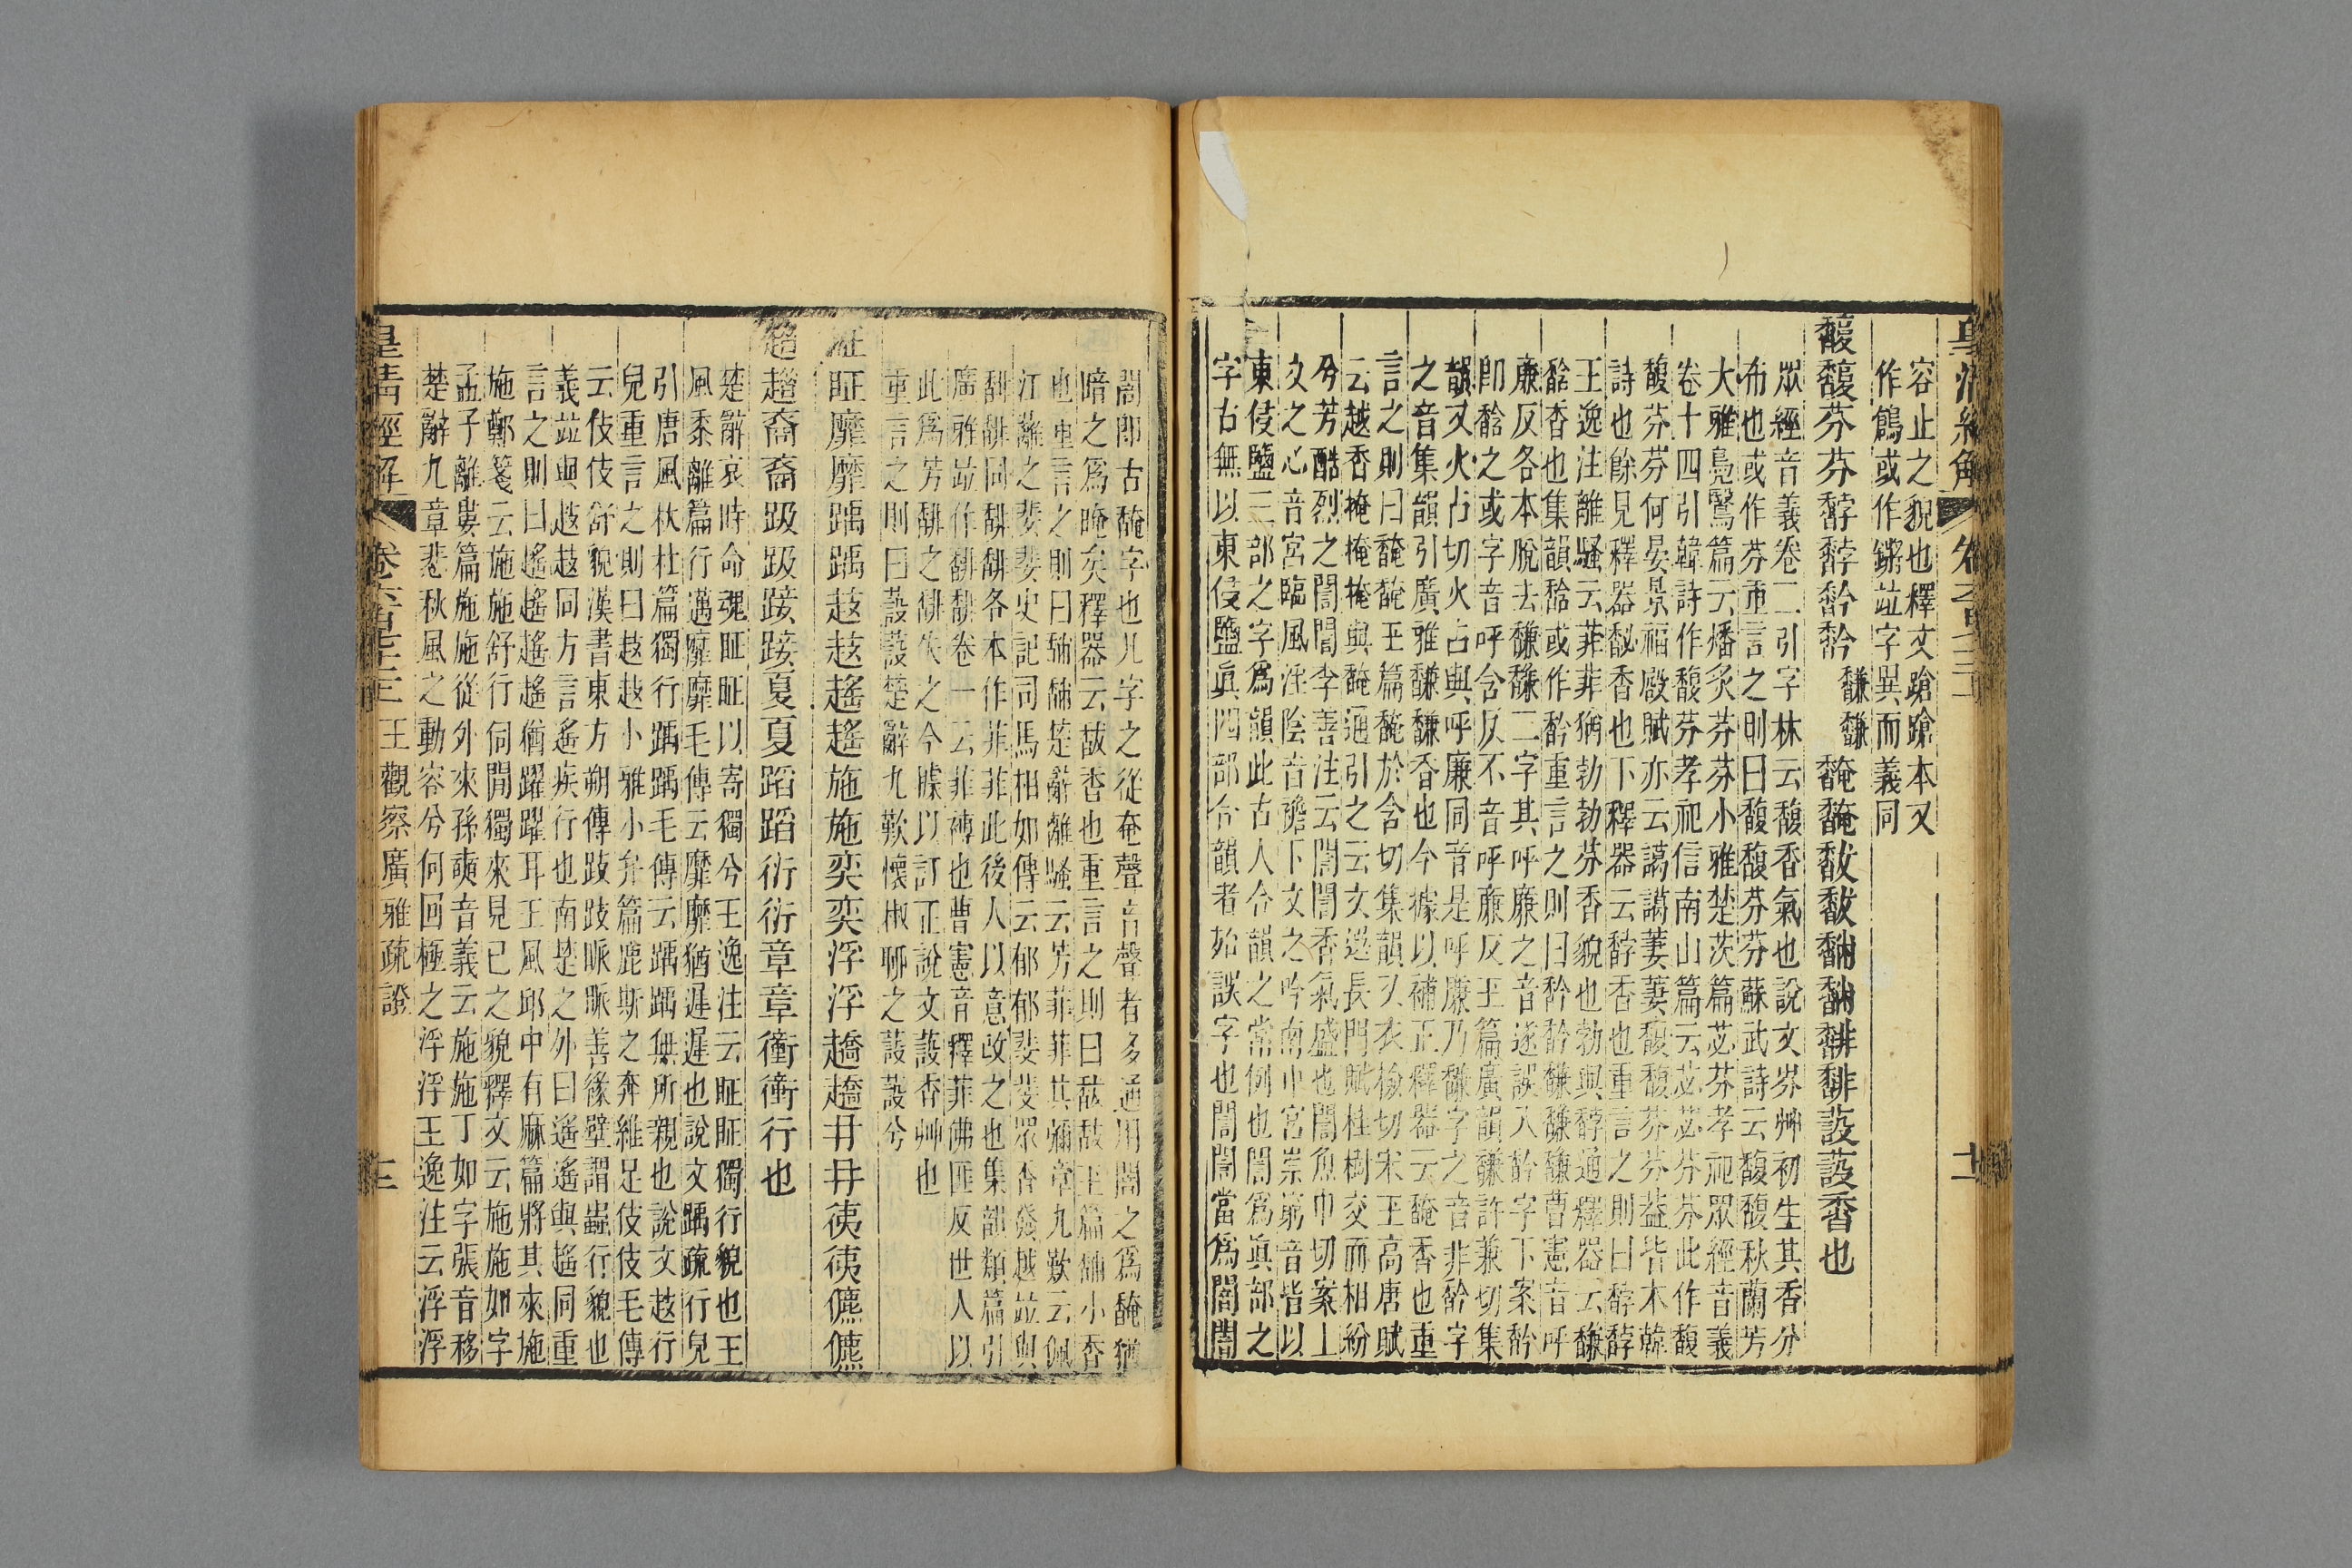 容止之貌也釋文蹌蹌本又
作鶬或作鏘竝字異而義同
馥馥芬芬馞馞馚馚馦馦馣馣馛馛䭯䭯馡馡蔎蔎香也
眾經音義卷二引字林云馥香氣也說文芬艸初生其香分
布也或作芬重言之則曰馥馥芬芬蘇武詩云馥馥秋蘭芳
大雅鳧鷖篇云燔炙芬芬小雅楚茨篇苾芬孝祀眾經音義
卷十四引韓詩作馥芬孝祀信南山篇云苾苾芬芬此作馥
馥芬芬何晏景福殿賦亦云藹藹萋萋馥馥芬芬葢皆本韓
詩也餘見釋器馝香也下釋器云馞香也重言之則曰馞馞
王逸注離騷云菲菲猶勃勃芬香貌也勃與馞通釋器云馦
香也集韻或作重言之則曰馦馦曹憲音呼
廉反各本脫去馦馦二字其呼廉之音遂誤入字下案
卽之或字音呼含反不音呼廉反玉篇廣韻馦許兼切集
韻又火占切火占與呼廉同音是呼廉乃馦字之音非字
之音集韻引廣雅馦馦香也今據以補正釋器云馣香也重
言之則曰馣馣玉篇馣於含切集韻又衣檢切宋玉高唐賦
云越香掩掩掩與馣通引之云文選長門賦桂樹交而相紛
兮芳酷烈之誾誾李善注云誾誾香氣盛也誾魚巾切案上
文之心音宮臨風淫陰音襜下文之吟南中宮崇窮音皆以
東侵鹽三部之字爲韻此古人合韻之常例也誾爲眞部之
字古無以東侵鹽眞四部合韻者殆誤字也誾誾當爲闇闇
闇卽古馣字也凡字之從奄聲音聲者多通用闇之爲馣猶
暗之爲晻矣釋器云馛香也重言之則曰馛馛玉篇䭯小香
也重言之則曰䭯䭯楚辭離騷云芳菲菲其彌章九歎云佩
江蘺之斐斐史記司馬相如傳云郁郁斐斐眾香發越竝與
馡馡同馡馡各本作菲菲此後人以意改之也集韻類篇引
廣雅竝作馡馡卷一云菲薄也曹憲音釋菲佛匪反世人以
此爲芳馡之馡失之今據以訂正說文蔎香艸也
重言之則曰蔎蔎楚辭九歎懷椒聊之蔎蔎兮
眐眐靡靡踽踽䟞䟞䠛䠛施施奕奕浮浮趫趫冄冄侇侇儦儦
䞣䞣裔裔趿趿踥踥夏夏蹈蹈衎衎章章衝衝行也
楚辭哀時命魂眐眐以寄獨兮王逸注云眐眐獨行貌也王
風黍離篇行邁靡靡毛傳云靡靡猶遲遲也說文踽疏行皃
引唐風杕杜篇獨行踽踽毛傳云踽踽無所親也說文䟞行
皃重言之則曰䟞䟞小雅小弁篇鹿斯之奔維足伎伎毛傳
云伎伎舒貌漢書東方朔傳跂跂脈脈善緣壁謂蟲行貌也
義竝與䟞䟞同方言遙疾行也南楚之外曰遙遙與䠛同重
言之則曰䠛䠛䠛猶躍躍耳王風邱中有麻篇將其來施
施鄭箋云施施舒行伺閒獨來見已之貌釋文云施施如字
孟子離婁篇施施從外來孫奭音義云施施丁如字張音移
楚辭九章悲秋風之動容兮何回極之浮浮王逸注云浮浮
皇清經解 卷六百七十二 王觀察廣雅疏證 三